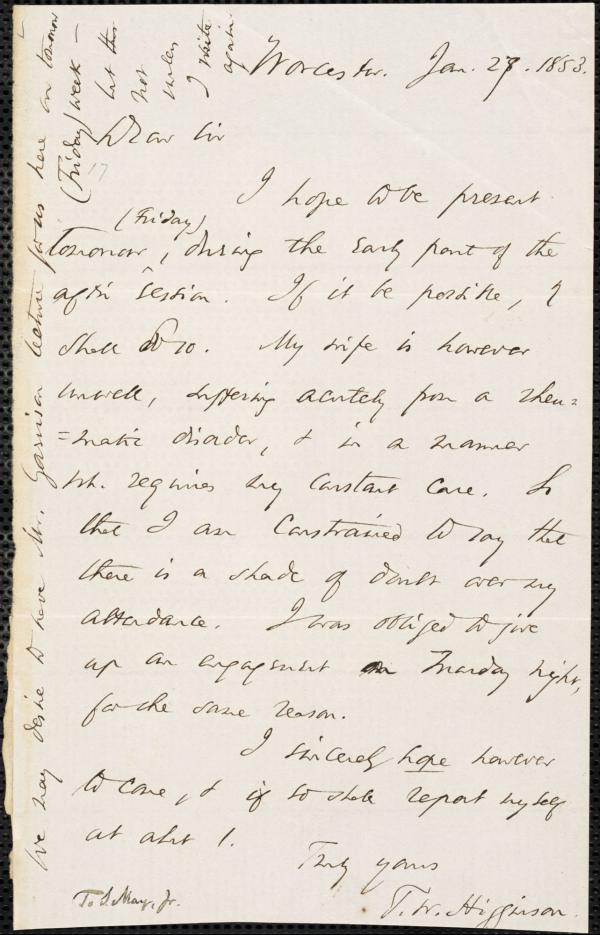 Worcester. Jan. 27. 1853.
Dear Sir
I hope to be present
(Friday)
tomorrow, during the early part of the
aftn session. If it be possible, I
shall do so. My wife is however
unwell, suffering acutely from a rheu=
=matic disorder, & in a manner
wh. requires my constant care. So
that I am constrained to say that
there is a shade of doubt over my
attendance. I was obliged to give
up an engagement on Tuesday night,
for the same reason.
I sincerely hope however
to come, & if so shall report myself
at abt 1.
Truly yours
T. W. Higginson.
To S. May, Jr.
We may desire to have Mr. Garrison lecture for us here on tomorrow
(Friday) week –
but this
not
unless
I write
again
17